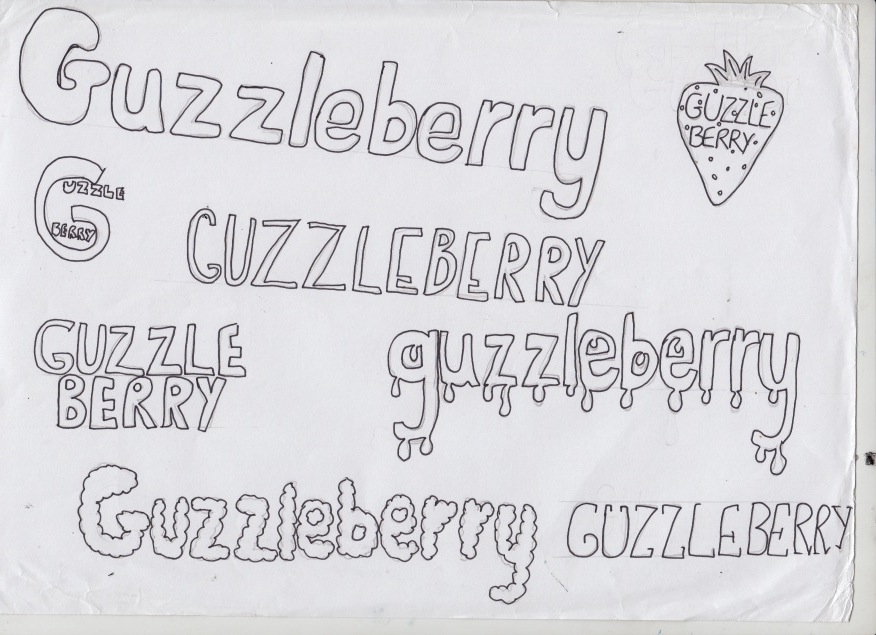 Guzzleberry
GUZZLE
BERRY
GUZZLE
BERRY
GUZZLEBERRY
GUZZLE
BERRY
guzzleberry
Guzzleberry
GUZZLEBERRY